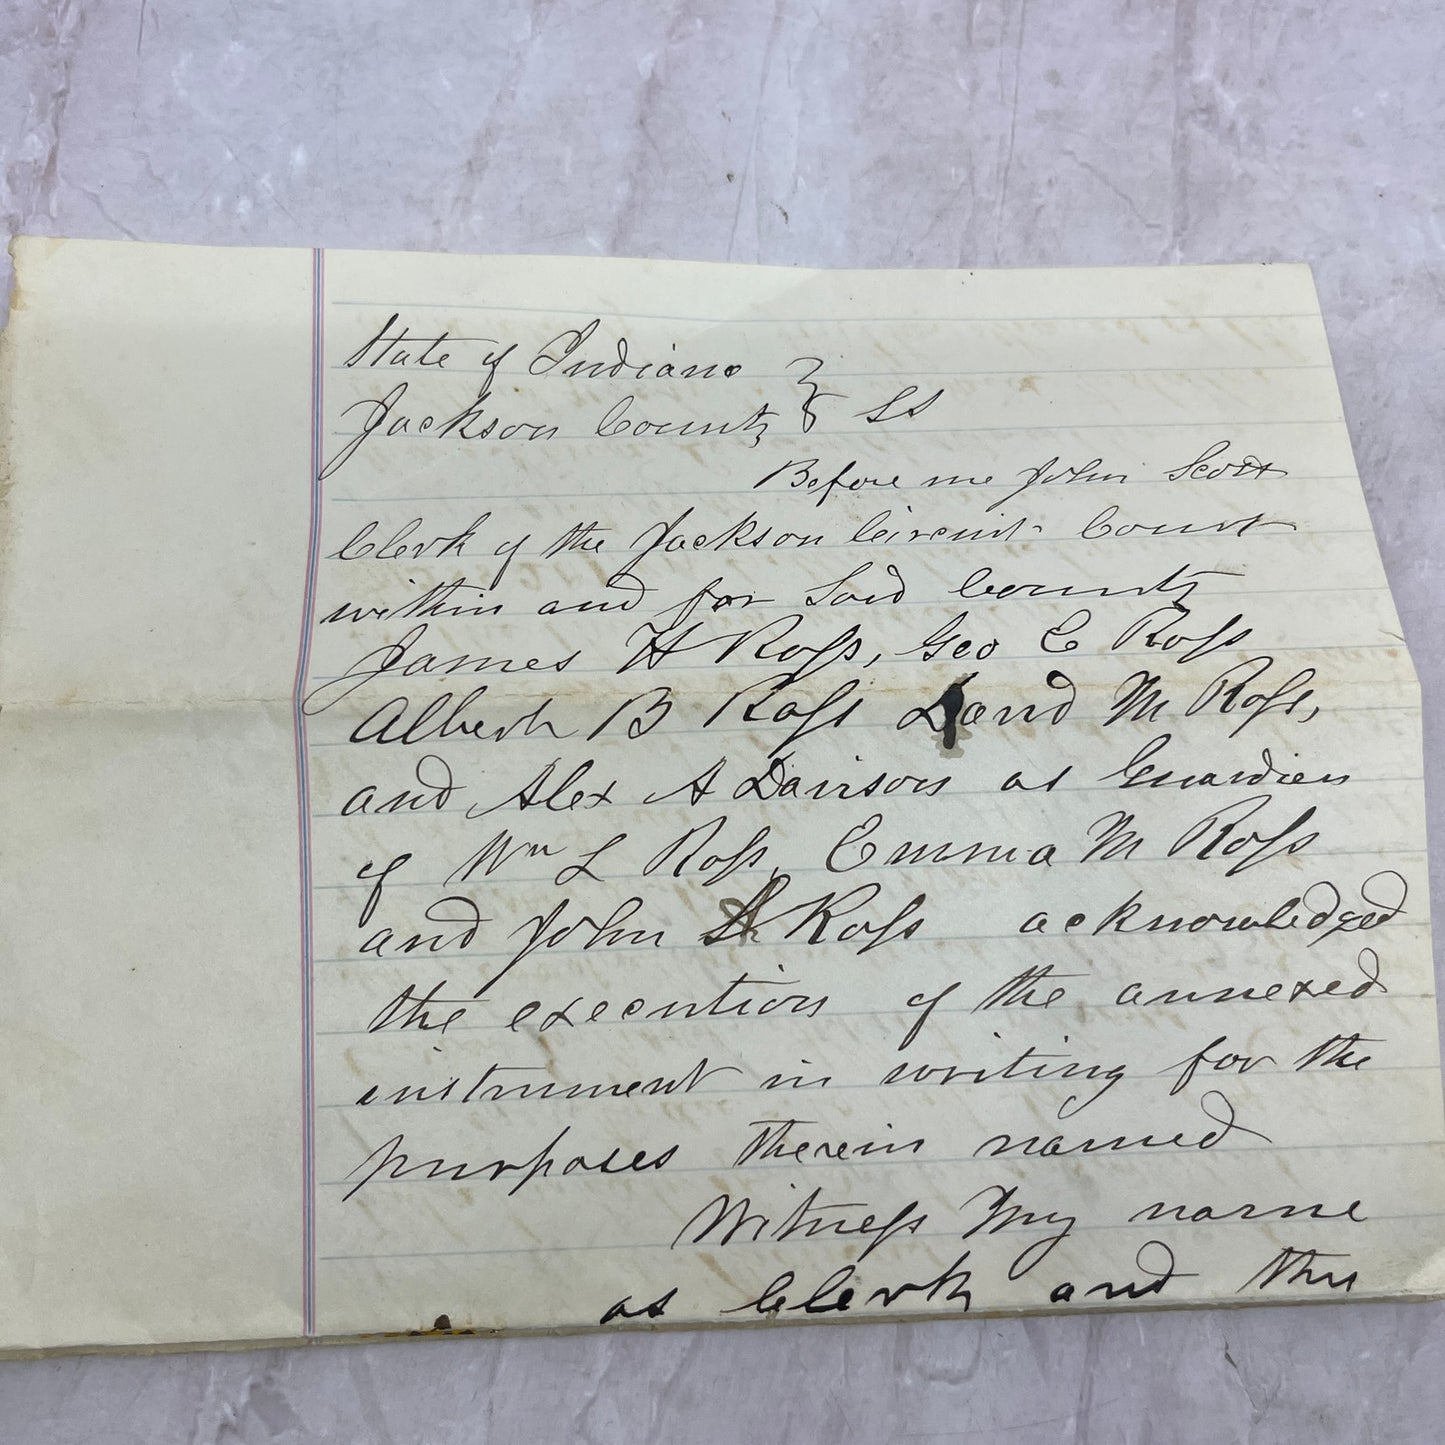 State of Indiana }
Jackson County } SS
Before me John Scott
Clerk of the Jackson Circuit Court
within and for Said County
James H Ross, Geo E Ross
Albert B Ross and M Ross,
and Alex A Davison as Guardian
of Wm L Ross, Emma M Ross
and John Ross acknowledged
the execution of the annexed
instrument in writing for the
purposes therein named
Witness My name
as Clerk and the